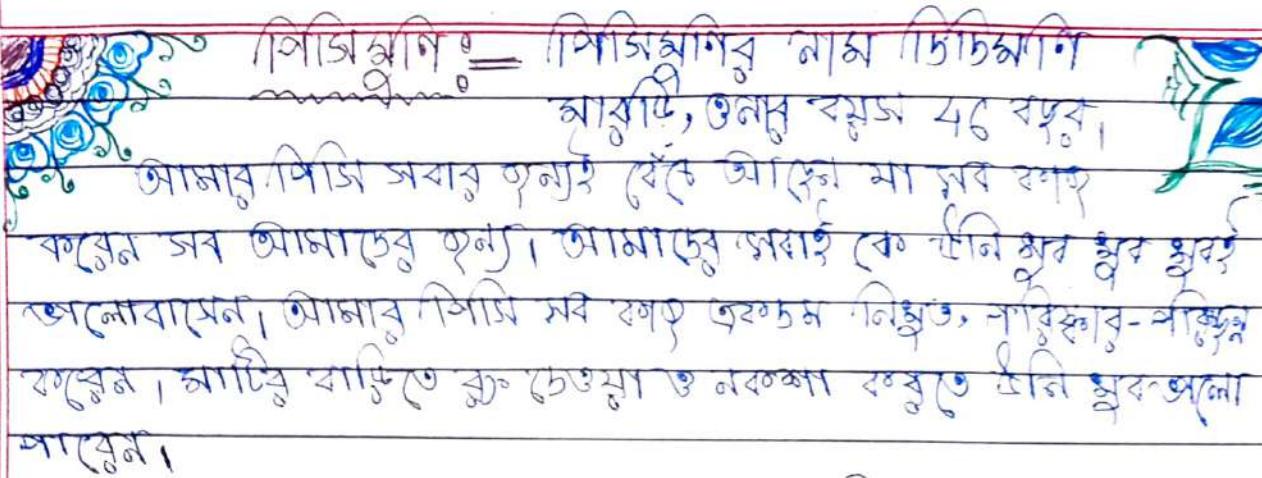 পিসিমুণি :=  পিসিমুণির নাম চিচিমণি
মারাণ্ডি, ওনার বয়স 46 বছর।
আমার পিসি সবার জন্যই বেঁচে আছেন যা সব কাজ
করেন সব আমাদের জন্য। আমাদের সবাই কে উনি খুব খুব খুবই
ভালোবাসেন। আমার পিসি সব কাজ একদম নিখুত, পরিস্কার-পরিচ্ছন্ন
করেন। মাটির বাড়িতে রং দেওয়া ও নকশা করতে উনি খুব ভালো
পারেন।